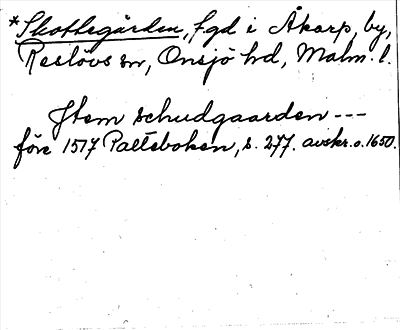 *Skottegården, fgd i Åkarp, by,
Reslövs sn, Onsjö hd, Malm. l.
Jtem schudgaarden ---
före 1517 Palteboken, s. 277. avskr. o. 1650.